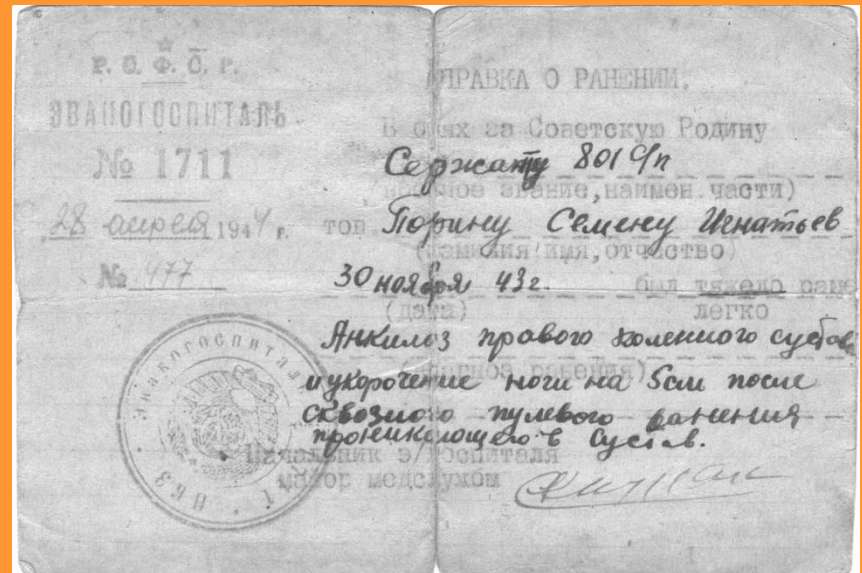 Р. С. Ф. С. Р.
ЭВАКОГОСПИТАЛЬ
№ 1711
28 апреля 1944 г.
№ 477
СПРАВКА О РАНЕНИИ.
В боях за Советскую Родину
Сержанту 801 с/п
(военное звание, наимен. части)
тов Порину Семену Игнатьев
(фамилия имя, отчество)
30 ноября 43г. был тяжело ране
(дата) легко
Анкилоз правого коленного сустав
(диагноз ранения)
и укорочение ноги на 5см после
сквозного пулевого ранения
проникающего в сустав.
Начальник э/госпиталя
майор медслужбы
Эвакогоспиталь
НКЗ